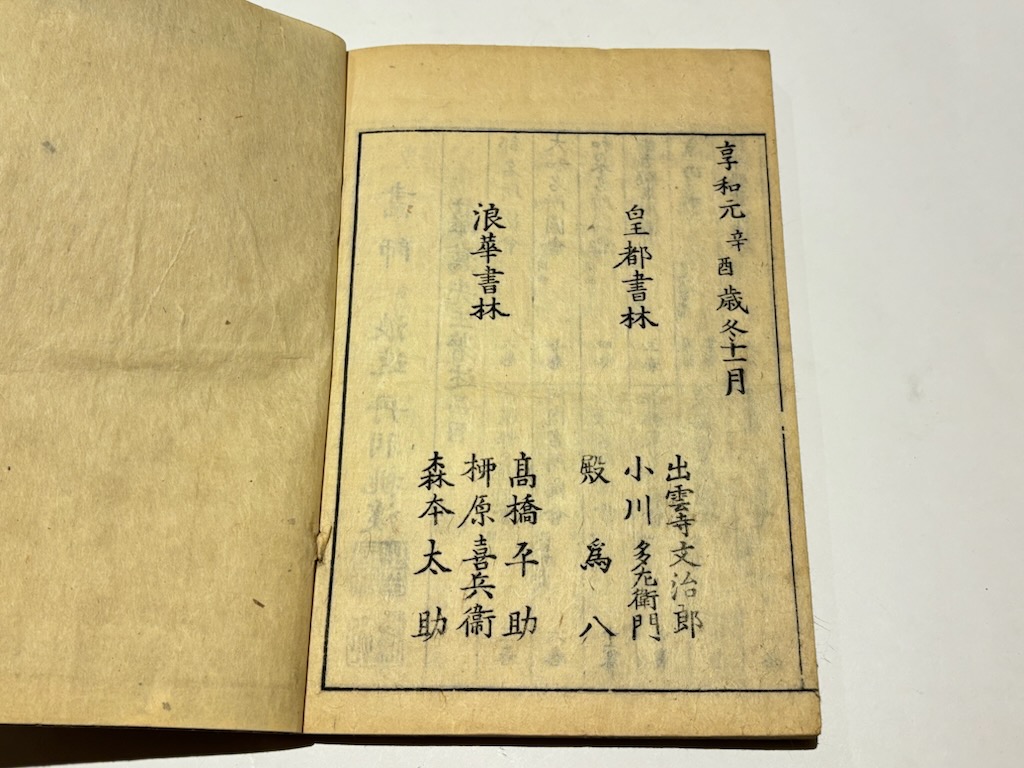 享和元辛酉歳冬十一月
皇都書林
出雲寺文治郎
小川多左衛門
殿爲八
浪華書林
髙橋平助
柳原喜兵衞
森本太助